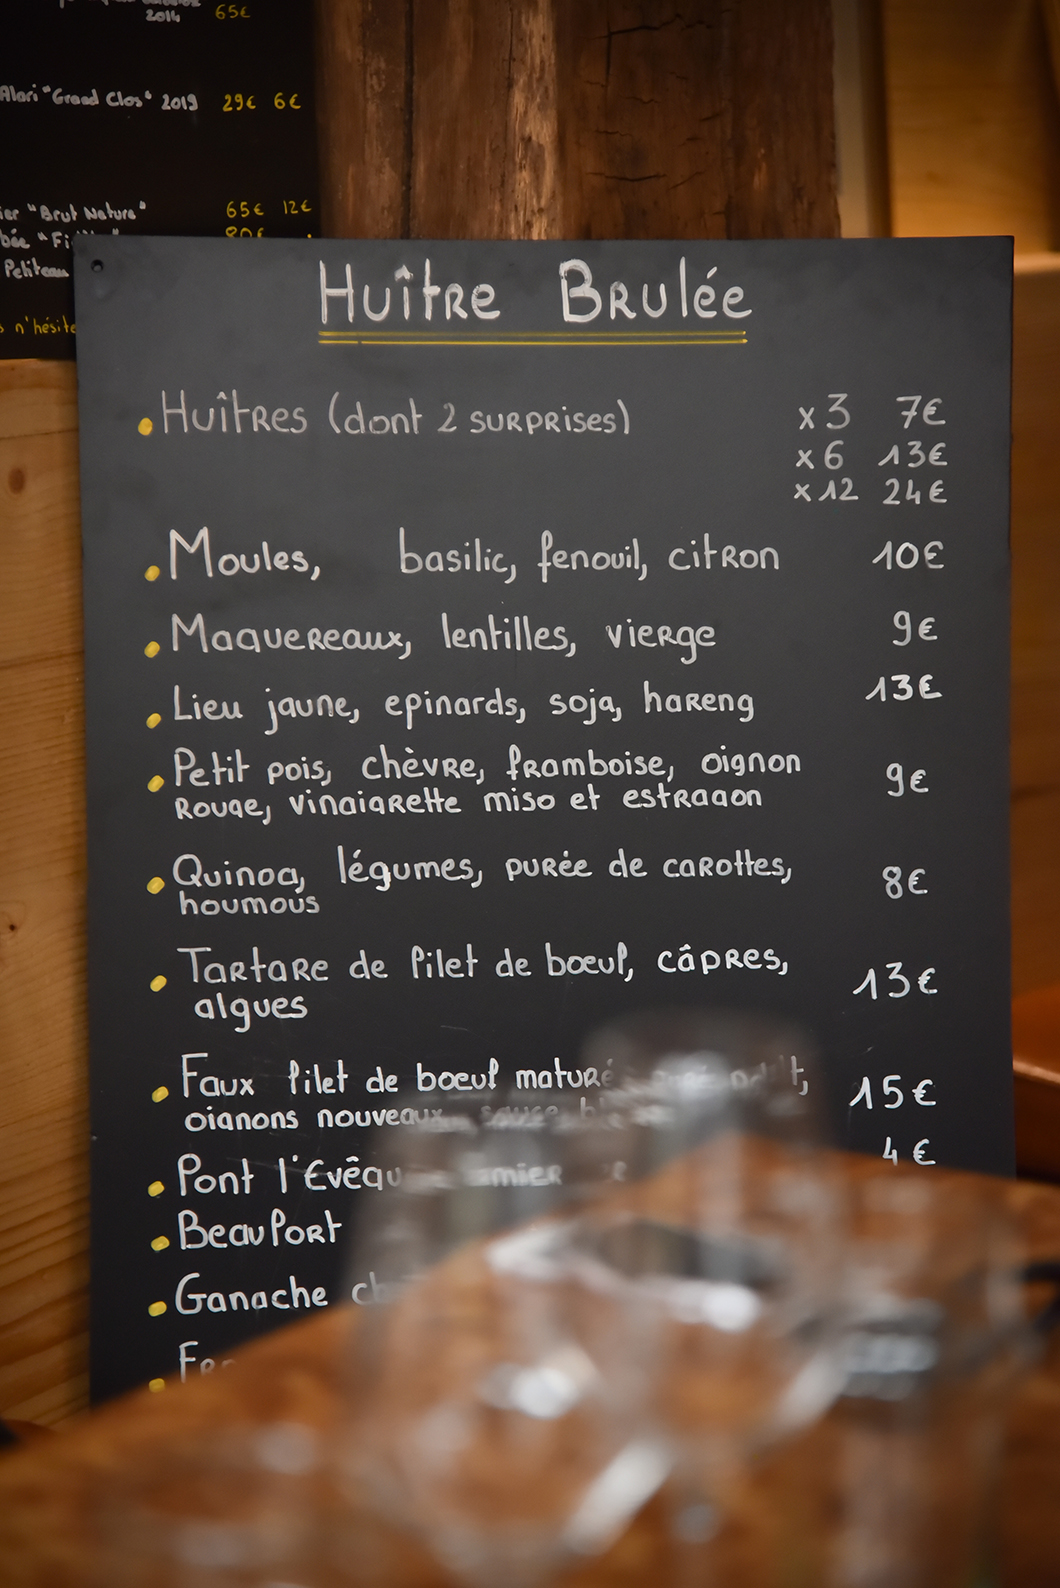 2014 65€
Alari "Grand Clos" 2019 29€ 6€
"Brut Nature" 65€ 12€
80€
n'hésite
Huître Brulée
Huîtres (dont 2 surprises) x3 7€
x6 13€
x12 24€
Moules, basilic, fenouil, citron 10€
Maquereaux, lentilles, vierge 9€
Lieu jaune, epinards, soja, hareng 13€
Petit pois, chèvre, framboise, oignon 9€
rouge, vinaigrette miso et estragon
Quinoa, légumes, purée de carottes, 8€
houmous
Tartare de filet de bœuf, câpres, 13€
algues
Faux filet de bœuf maturé 15€
oignons nouveaux, sauce
Pont l'Evêque 4€
Beaufort
Ganache